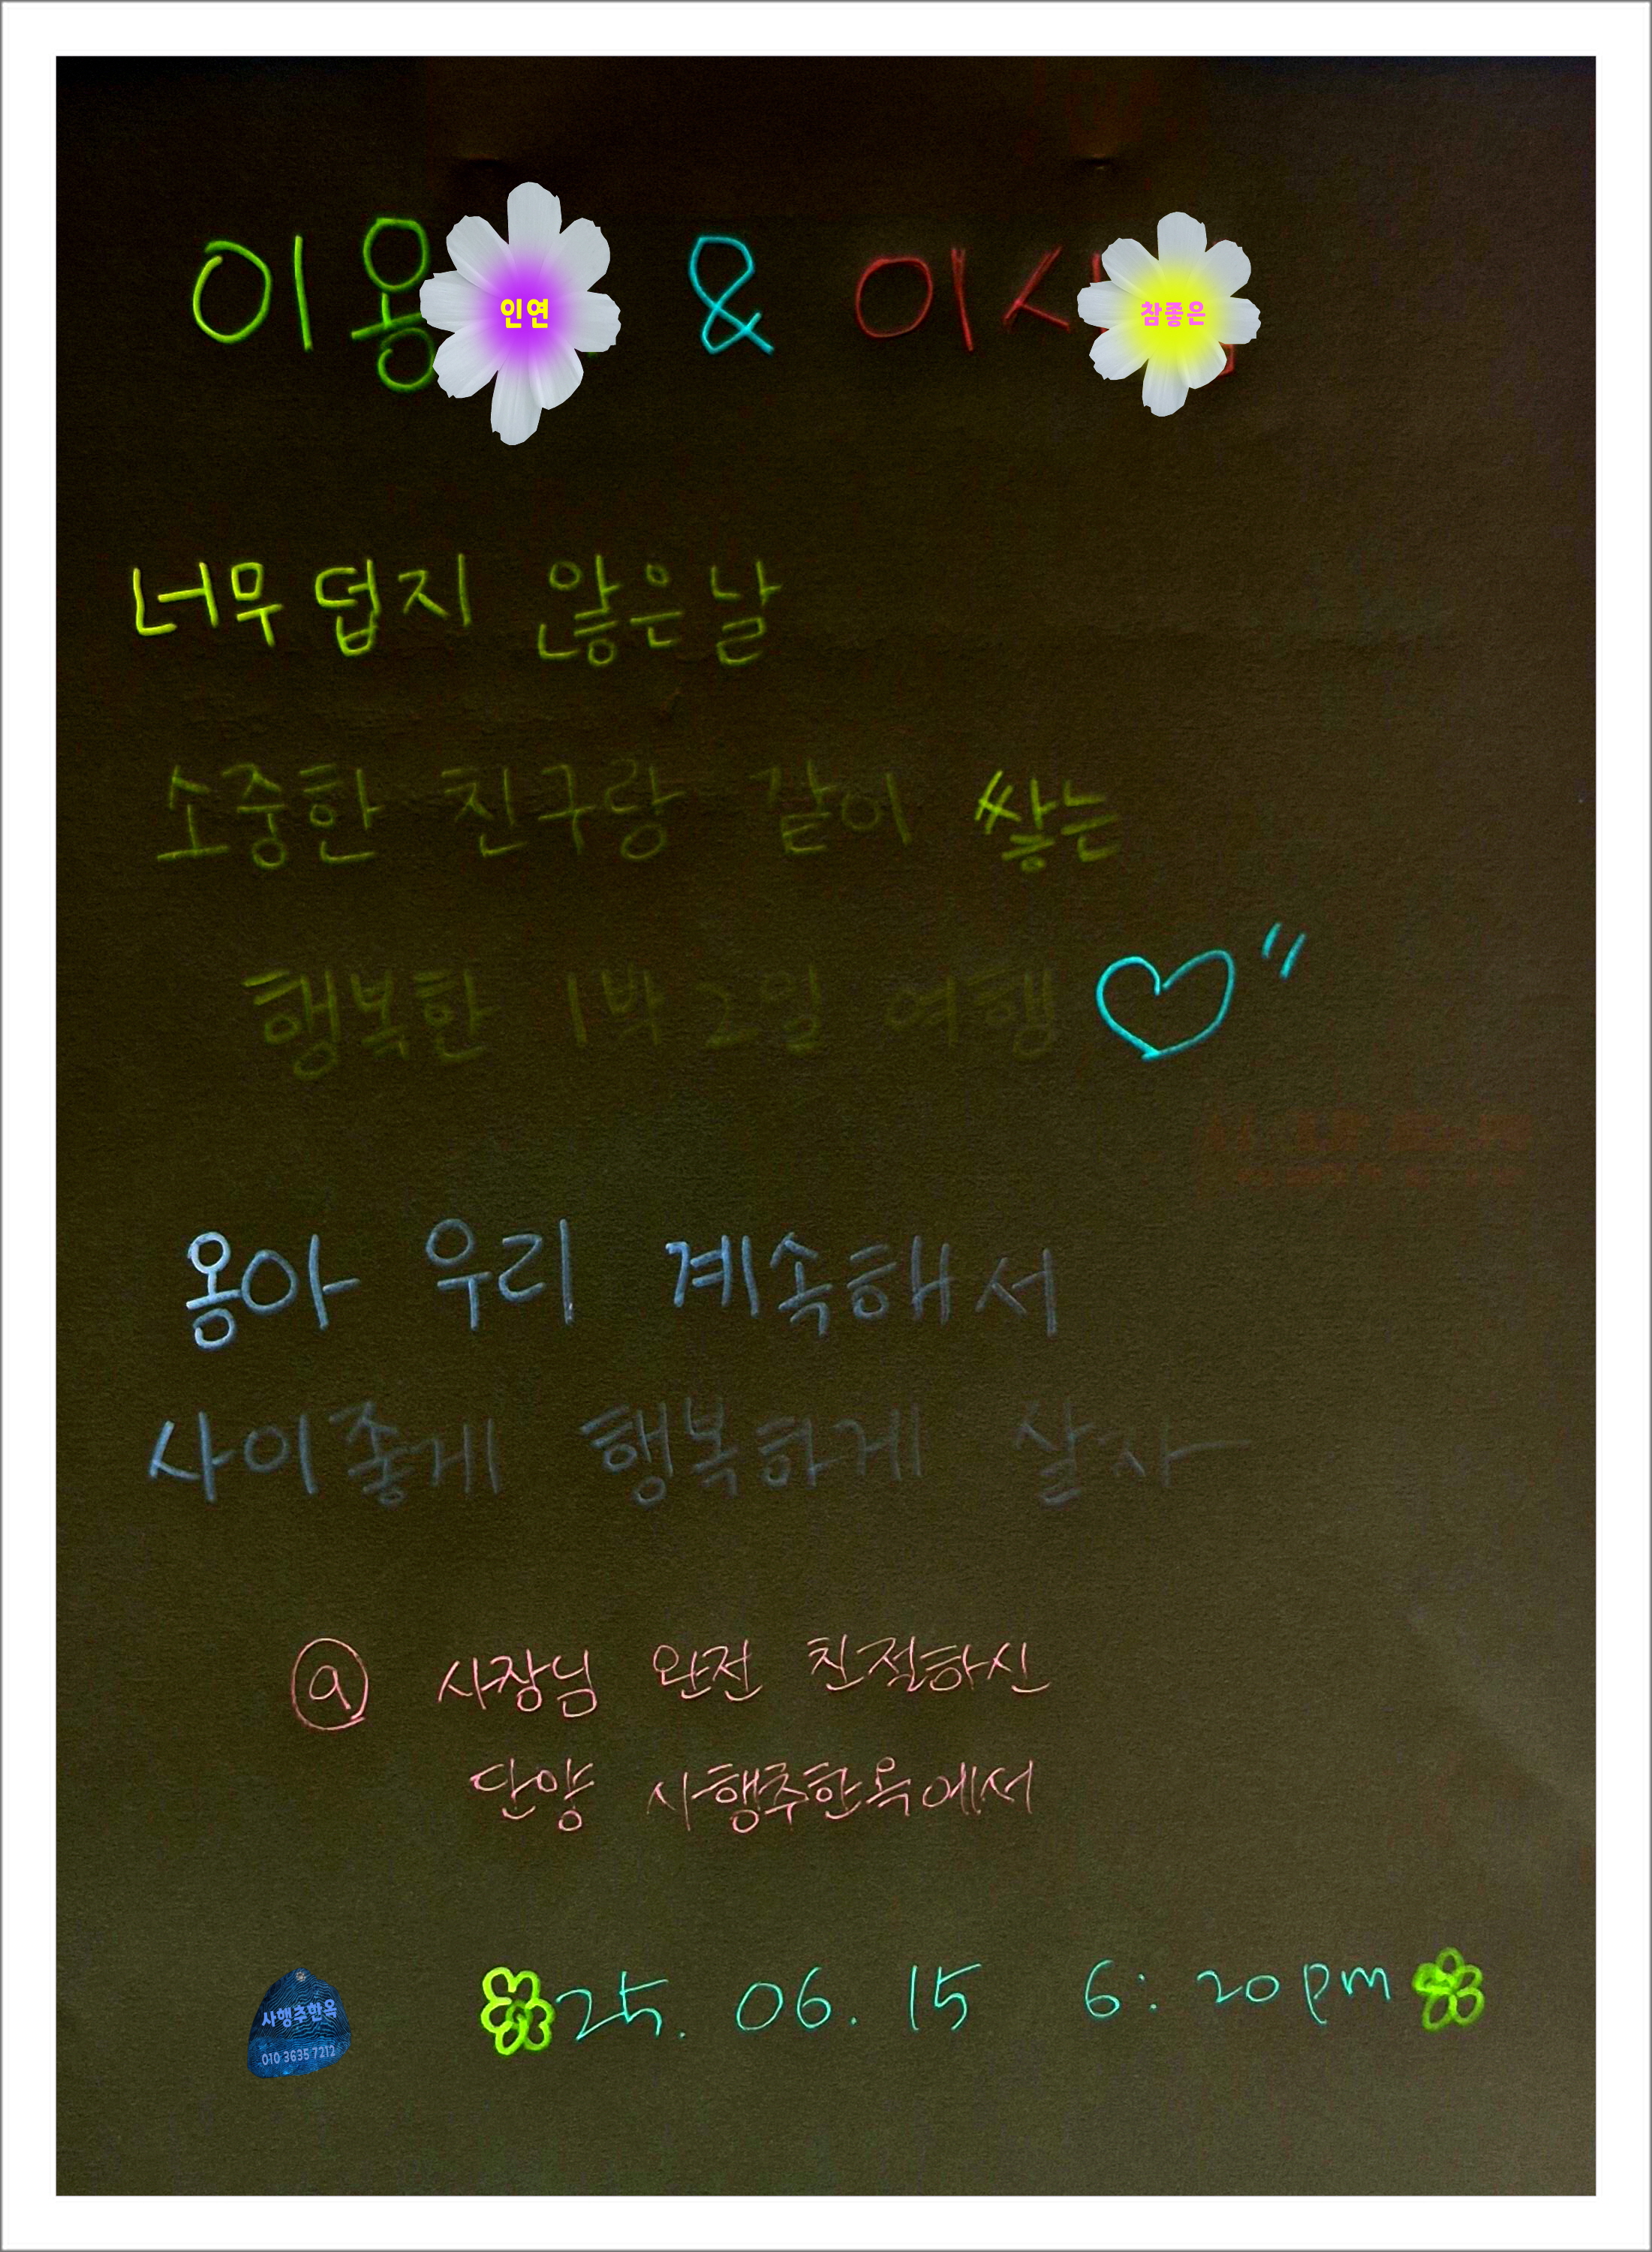 이용 인연 & 이 참좋은
너무 덥지 않은 날
소중한 친구랑 같이 쌓는
행복한 1박2일 여행 ♡"
용아 우리 계속해서
사이좋게 행복하게 살자
@ 사장님 완전 친절하신
단양 사행추한옥에서
25. 06. 15 6:20pm
사행추한옥
010 3635 7212